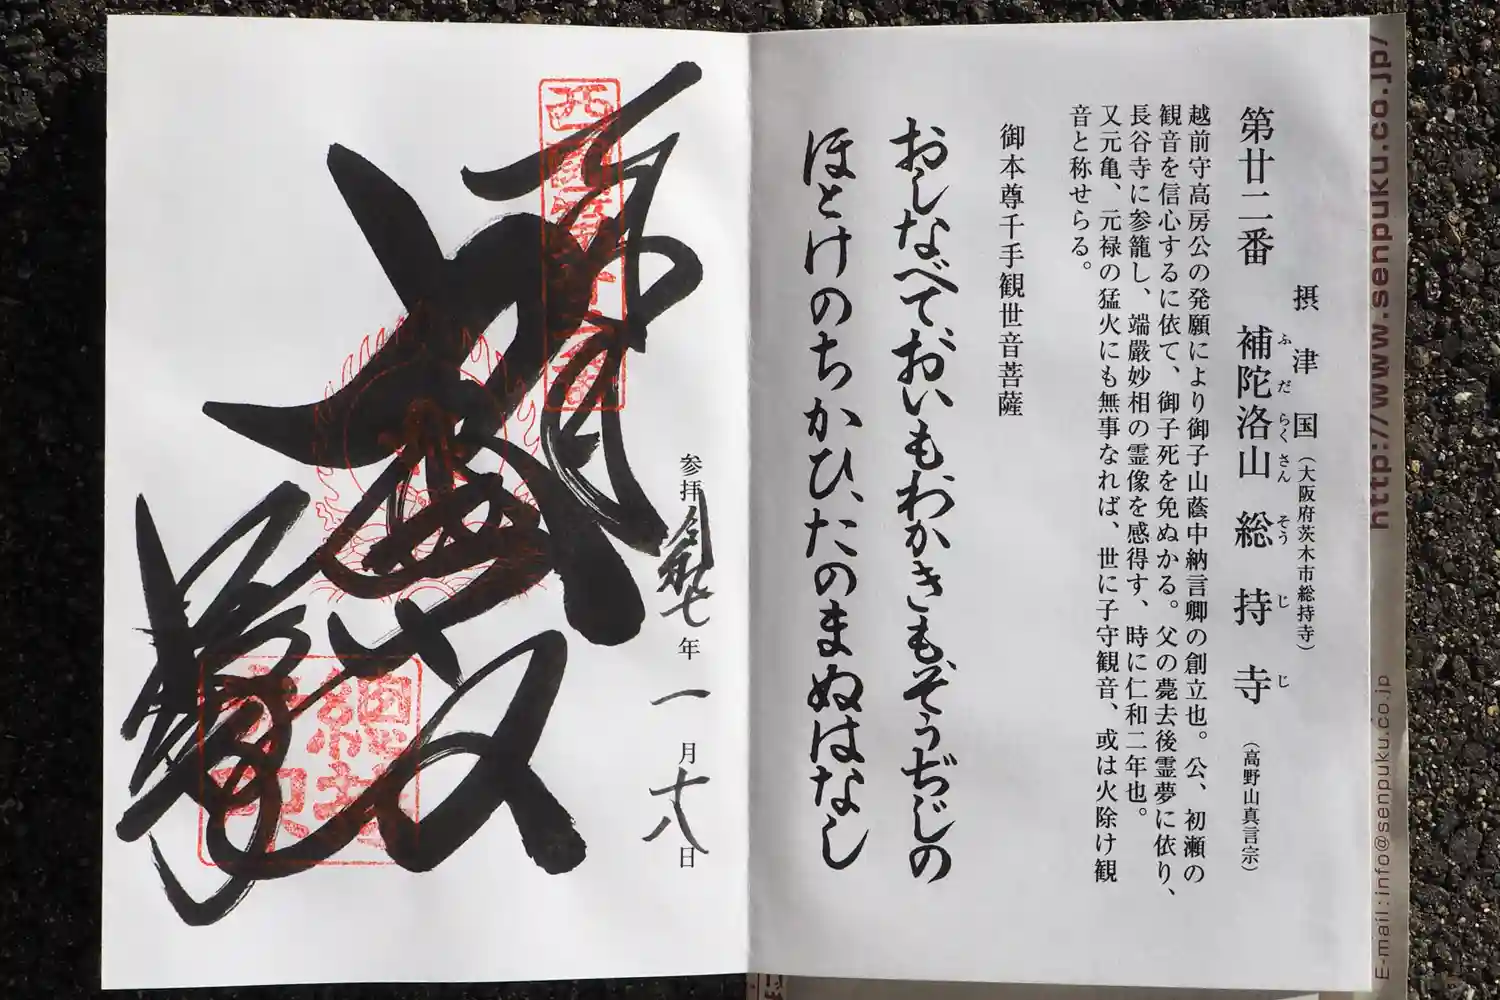 摂津国(大阪府茨木市総持寺)
第廿二番 補陀洛山 総持寺(高野山真言宗)
ふだらくさん そうじじ
越前守高房公の発願により御子山蔭中納言卿の創立也。公、初瀬の
観音を信心するに依て、御子死を免ぬかる。父の薨去後霊夢に依り、
長谷寺に参籠し、端厳妙相の霊像を感得す、時に仁和二年也。
又元亀、元禄の猛火にも無事なれば、世に子守観音、或は火除け観
音と称せらる。
御本尊千手観世音菩薩
おしなべておいもわかきもぞうぢじの
ほとけのちかひ、たのまぬはなし
参拝 令和七年 一月十八日
西国第廿二番
總持寺印
http://www.senpuku.co.jp/
E-mail:info@senpuku.co.jp